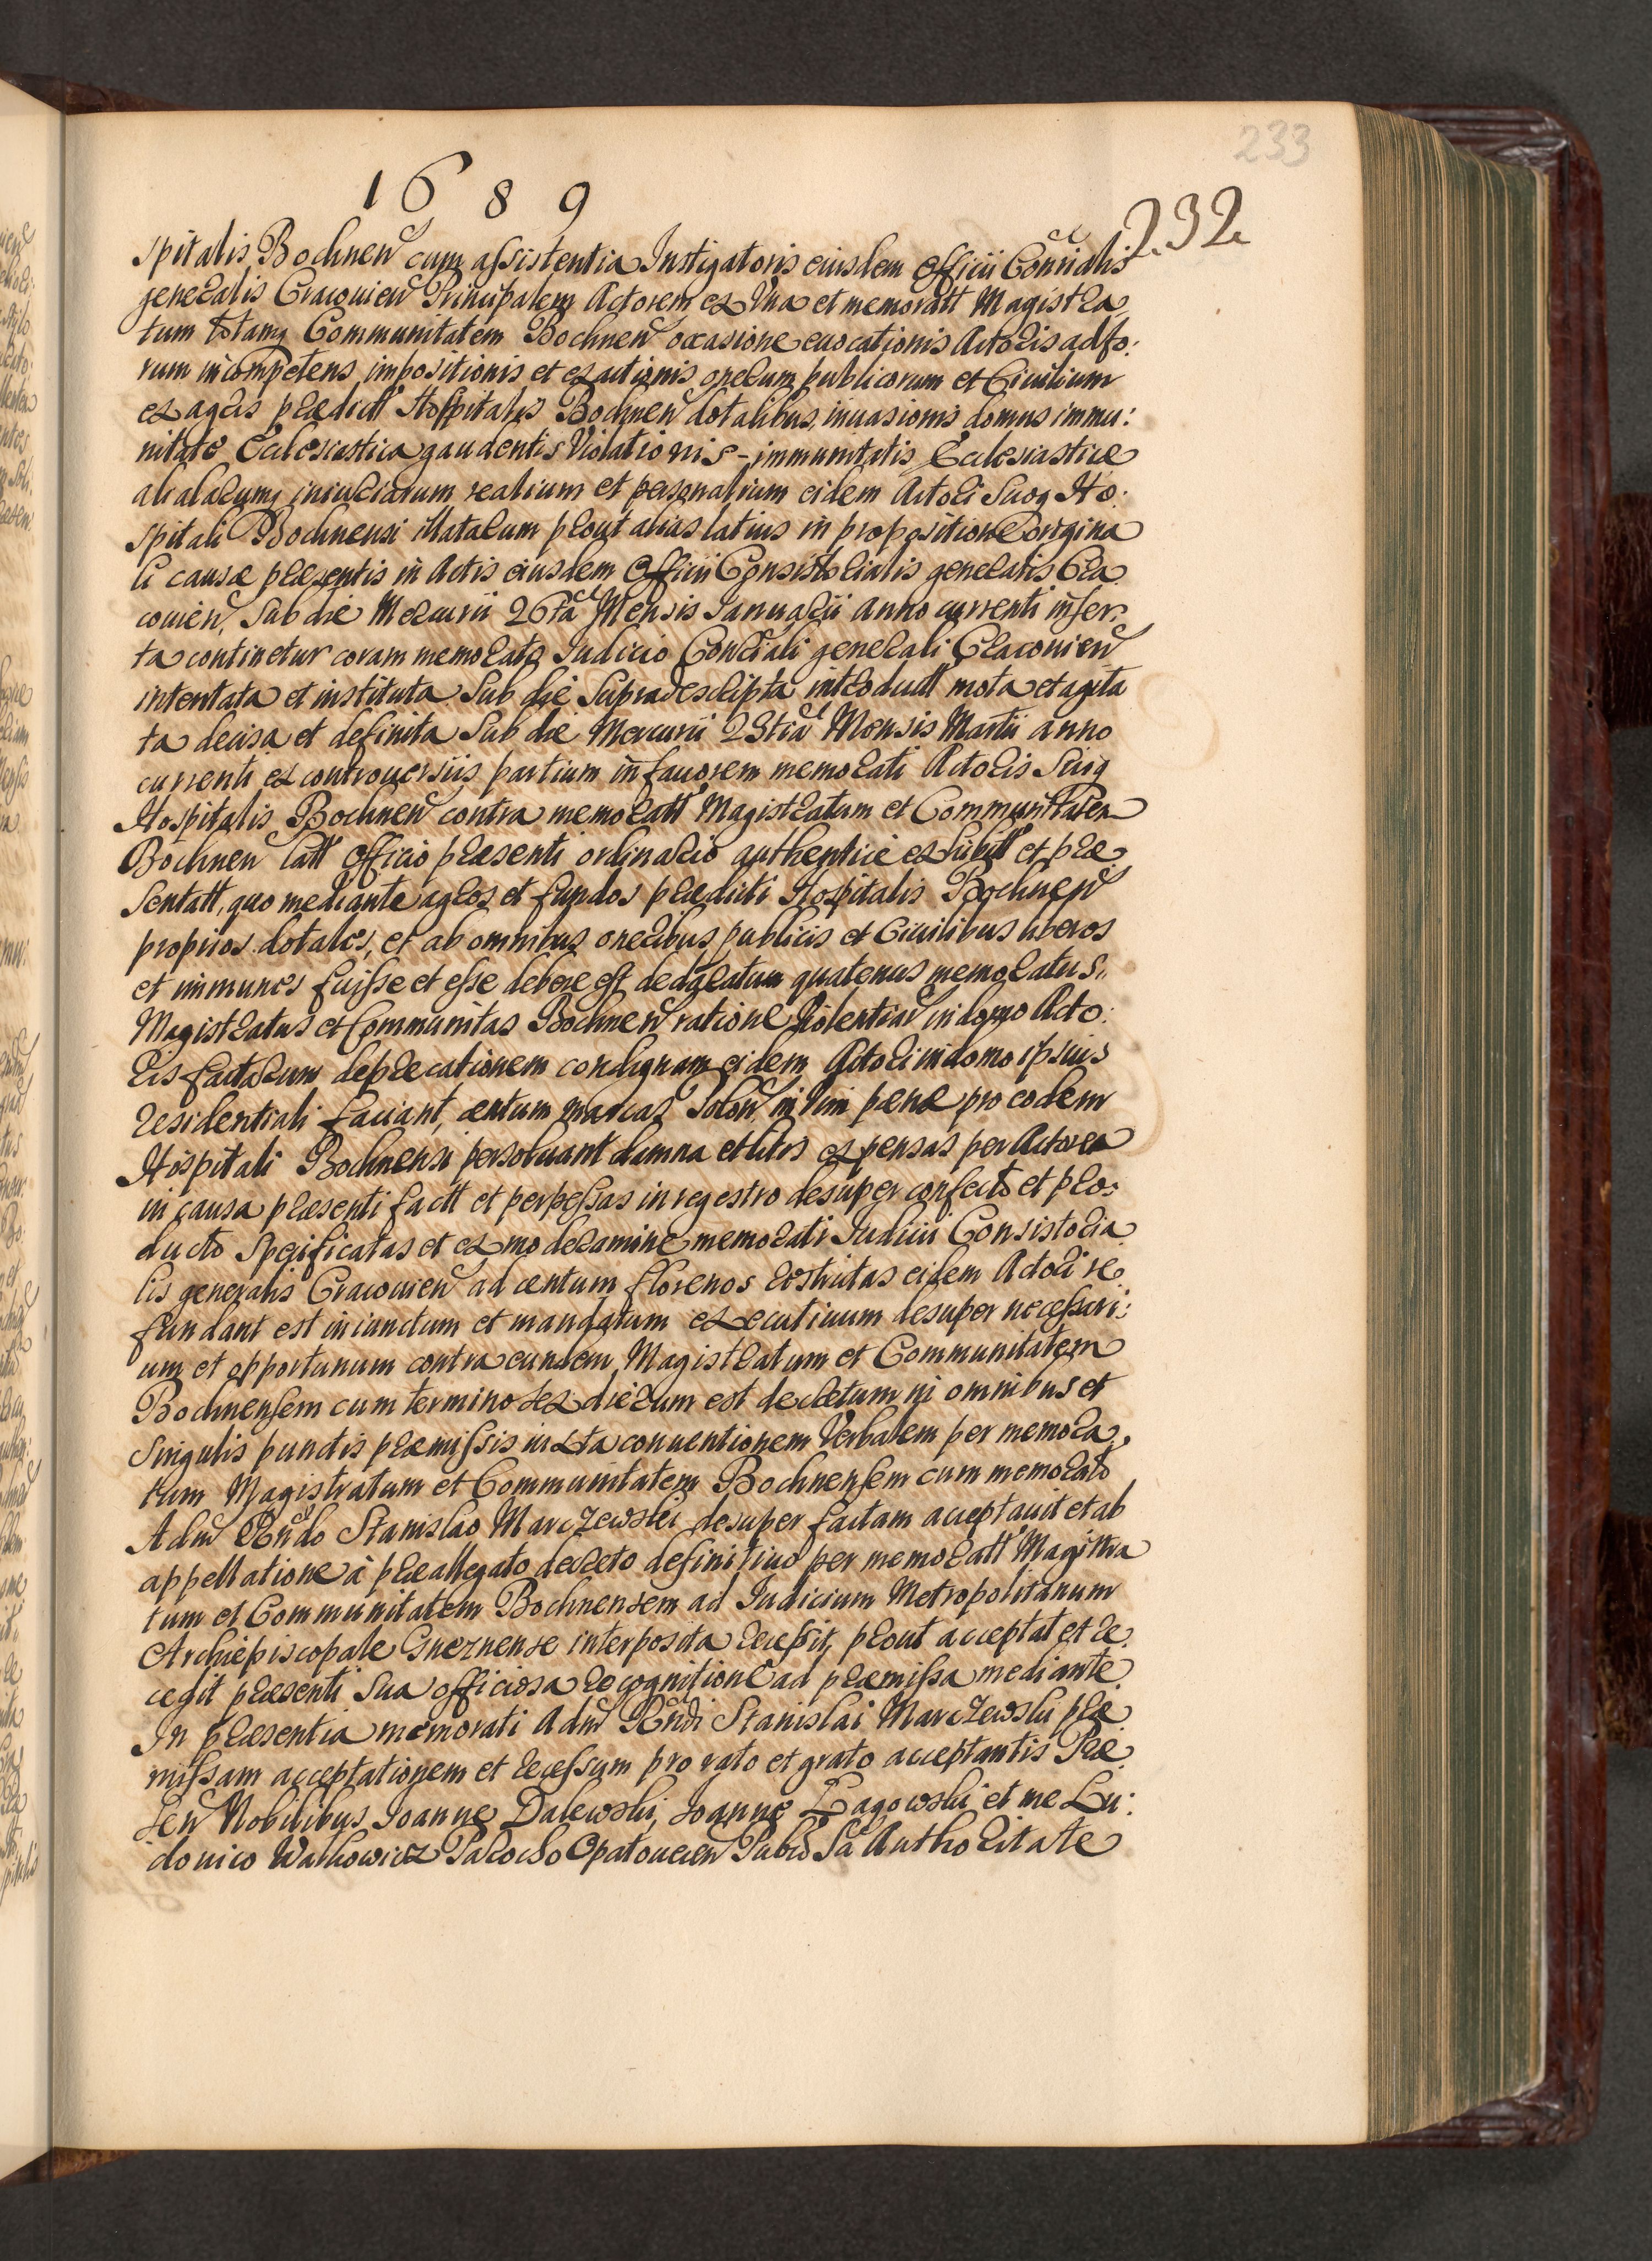 233
1689
232
spitalis Bochnen cum assistentia Instigatoris eiusdem Officii Conrialis
generalis Cracouien Principalem Actorem ex Vna et memoratt Magistra
tum totamq Communitatem Bochnen occasione euocationis Actoris ad fo:
rum incompetens impositionis et exactionis onerum publicorum et Ciuilium
ex agris praedictt Hospitalis Bochnen dotalibus, inuasionis domus immu:
nitate Ecclesiastica gaudentis Violationis - immunitatis Ecclesiasticae
aliararumq iniuriarum realium et personalium eidem Actori Suoq Ho:
spitali Bochnensi illatarum prout alias latius in propositione origina
li causae praesentis in Actis eiusdem Officii Consistorialis generalis Cra
couien, sub die Mercurii 26ta Mensis Januarii anno currenti inser:
ta continetur coram memorato Judicio Conrali generali Cracouien
intentata et instituta sub die supradescripta introductt mota et agita
ta decisa et definita sub die Mercurii 23tia Mensis Martii anno
currenti ex controuersiis partium in fauorem memorati Actoris Suiq
Hospitalis Bochnen contra memoratt Magistratum et Communitatem
Bochnen latt officio praesenti ordinario authentice exhibitt et prae
sentatt, quo mediante agros et fundos praedicti Hospitalis Bochnen
proprios dotales, et ab omnibus oneribus publicis et Ciuilibus liberos
et immunes fuisse et esse debere est declaratum quatenus memoratus
Magistratus et Communitas Bochnen ratione Violentiar in domo Acto:
ris factarum deprecationem condignam eidem Actori in domo ipsius
residentiali faciant, centum marcas Polon in vim paenae pro eodem
Hospitali Bochnensi persoluant damna et litis expensas per Actorem
in causa praesenti factt et perpessas in regestro desuper confecto et pro:
ducto specificatas et ex moderamine memorati Judicii Consistoria
lis generalis Cracouien ad centum florenos restrictas eidem Actori re
fundant est iniunctum et mandatum executiuum desuper necessari:
um et opportunum contra eundem Magistratum et Communitatem
Bochnensem cum termino sex dierum est decretum in omnibus et
singulis punctis praemissis iuxta conuentionem Verbalem per memora
tum Magistratum et Communitatem Bochnensem cum memorato
Adm Rndo Stanislao Marczewski desuper factam acceptauit et ab
appellatione à praeallegato decreto definitiuo per memoratt Magistra
tum et Communitatem Bochnensem ad Judicium Metropolitanum
Archiepiscopale Gneznense interposita recessit, prout acceptat et re
cedit praesenti sua officiosa recognitione ad praemissa mediante.
In praesentia memorati Adm Rndi Stanislai Marczewski prae
missam acceptationem et recessum pro rato et grato acceptantis Prae
sen Nobilibus Joanne Dalewski, Joanne Łagowski et me Lu:
douico Walkowicz Parocho Opatouecen Pubco Sa Authoritate